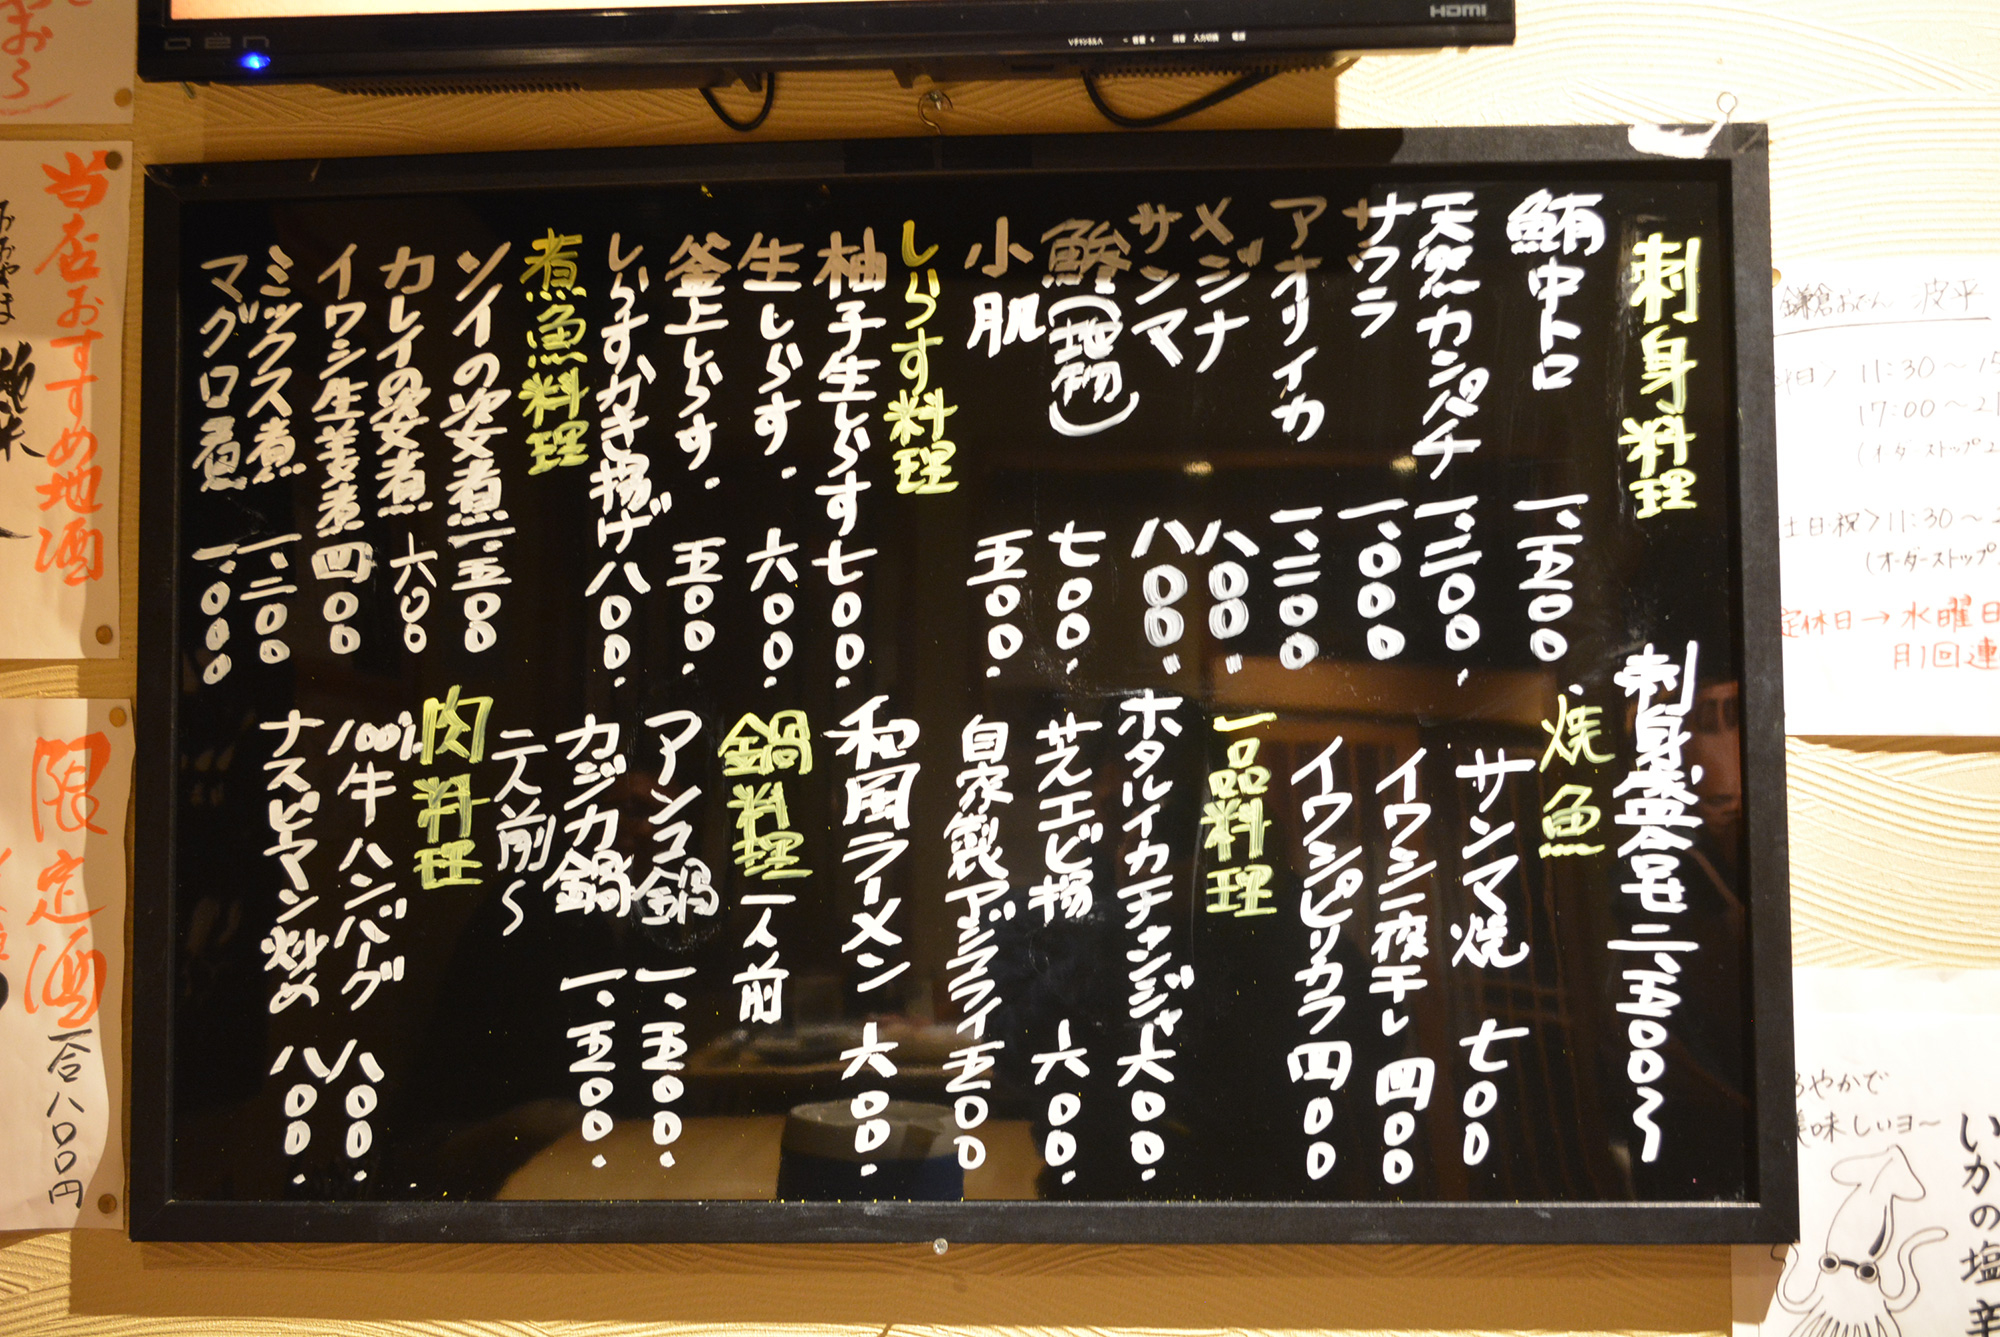 刺身料理
刺身盛合せ 二、五〇〇〜
鮪中トロ 一、五〇〇
天然カンパチ 一、二〇〇.
サワラ 一、〇〇〇
アオリイカ 一、二〇〇
メジナ 八〇〇.
サンマ 八〇〇.
鯵(地物) 七〇〇.
小肌 五〇〇.
しらす料理
柚子生しらす 七〇〇.
生しらす. 六〇〇.
釜上しらす. 五〇〇.
しらすかき揚げ 八〇〇.
煮魚料理
ソイの姿煮 一、五〇〇
カレイの姿煮 六〇〇
イワシ生姜煮 四〇〇
ミックス煮 一、二〇〇
マグロ煮 一、〇〇〇
焼魚
サンマ焼 七〇〇
イワシ一夜干し 四〇〇
イワシピリカラ 四〇〇
一品料理
ホタルイカチャンジャ 六〇〇.
芝エビ揚 六〇〇.
自家製アジフライ 五〇〇
和風ラーメン 六〇〇.
鍋料理 一人前
アンコ鍋 一、五〇〇.
カジカ鍋 一、五〇〇.
二人前〜
肉料理
100%牛ハンバーグ 八〇〇.
ナスピーマン炒め 八〇〇.
当店おすすめ地酒
限定酒
一合八〇〇円
鎌倉おでん 波平
11:30〜15
17:00〜21
土日祝>11:30〜2
(オーダーストップ
定休日→水曜日
月1回連
美味しいヨ〜
いかの塩辛
HDMI